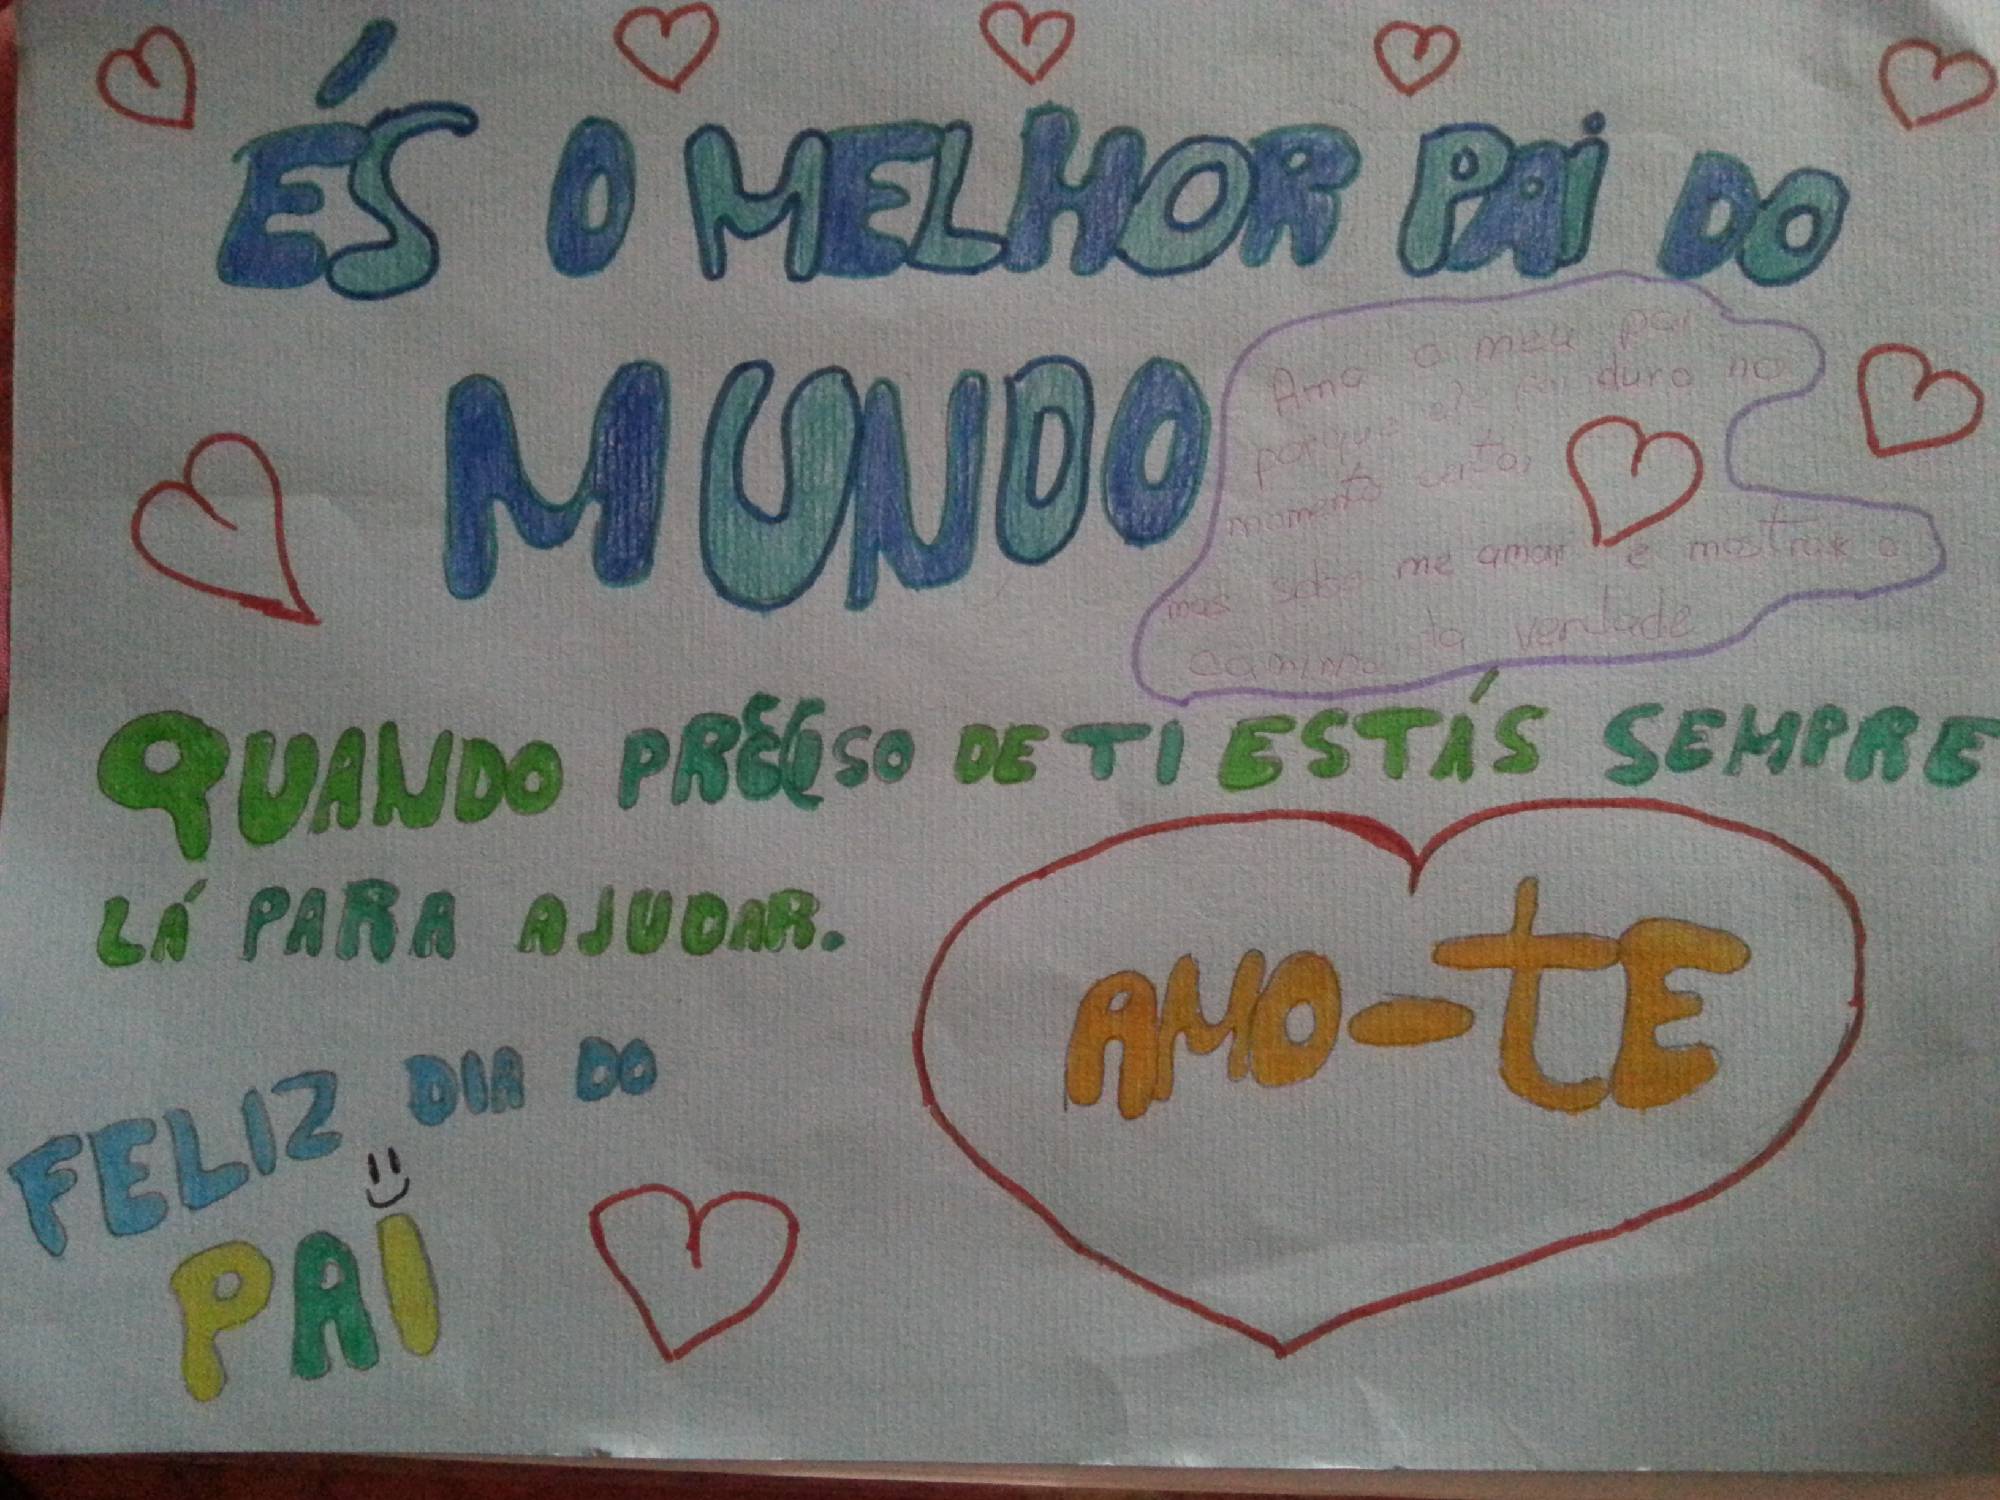 ÉS O MELHOR PAI DO
MUNDO
Amo o meu pai
porque ele foi duro no
momento certo,
mas sabe me amar e mostrar o
caminho da verdade
QUANDO PRECISO DE TI ESTÁS SEMPRE
LÁ PARA AJUDAR.
AMO-TE
FELIZ DIA DO
PAI